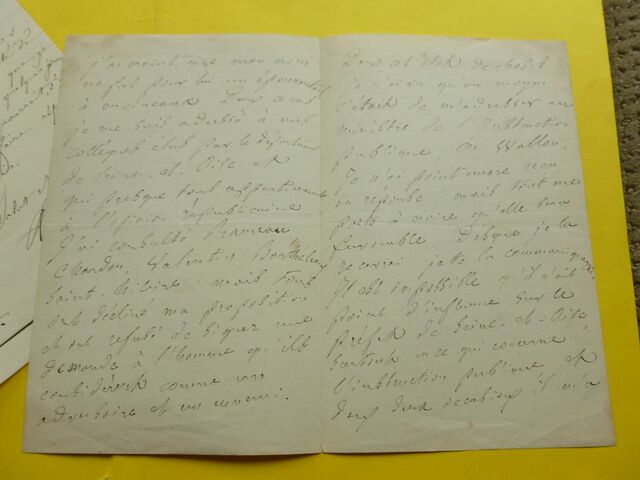 j'ai craint que mon nom
ne fut pour lui un épouvantail
à moineaux. Dans ce cas
je me suis adressé à mes
collègues élus par le département
de Seine-et-Oise et
qui presque tous appartiennent
à l'opinion républicaine.
J'ai consulté Rameau
Charton, Valentin Barthélemy
Saint-Hilaire; mais tous
ont décliné ma proposition
et ont refusé de signer une
demande à l'homme qu'ils
considèrent comme un
adversaire et un ennemi.
Dans cet état de choses
je n'avais qu'un moyen
c'était de m'adresser au
ministre de l'Instruction
publique, M. Wallon.
Je n'ai point encore reçu
sa réponse - mais tout me
porte à croire qu'elle sera
favorable. Dès que je la
recevrai je te la communiquerai.
Il est impossible qu'il n'ait
point d'influence sur le
préfet de Seine-et-Oise
surtout en ce qui concerne
l'instruction publique et
dans deux occasions il m'a